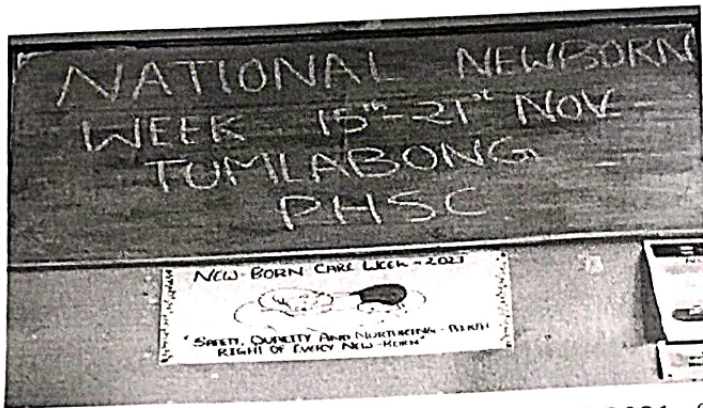 NATIONAL NEWBORN
WEEK 15th-21st NOV
TUMLABONG
PHSC
NEW-BORN CARE WEEK - 2021
"SAFETY, QUALITY AND NURTURING - BIRTH
RIGHT OF EVERY NEW-BORN"